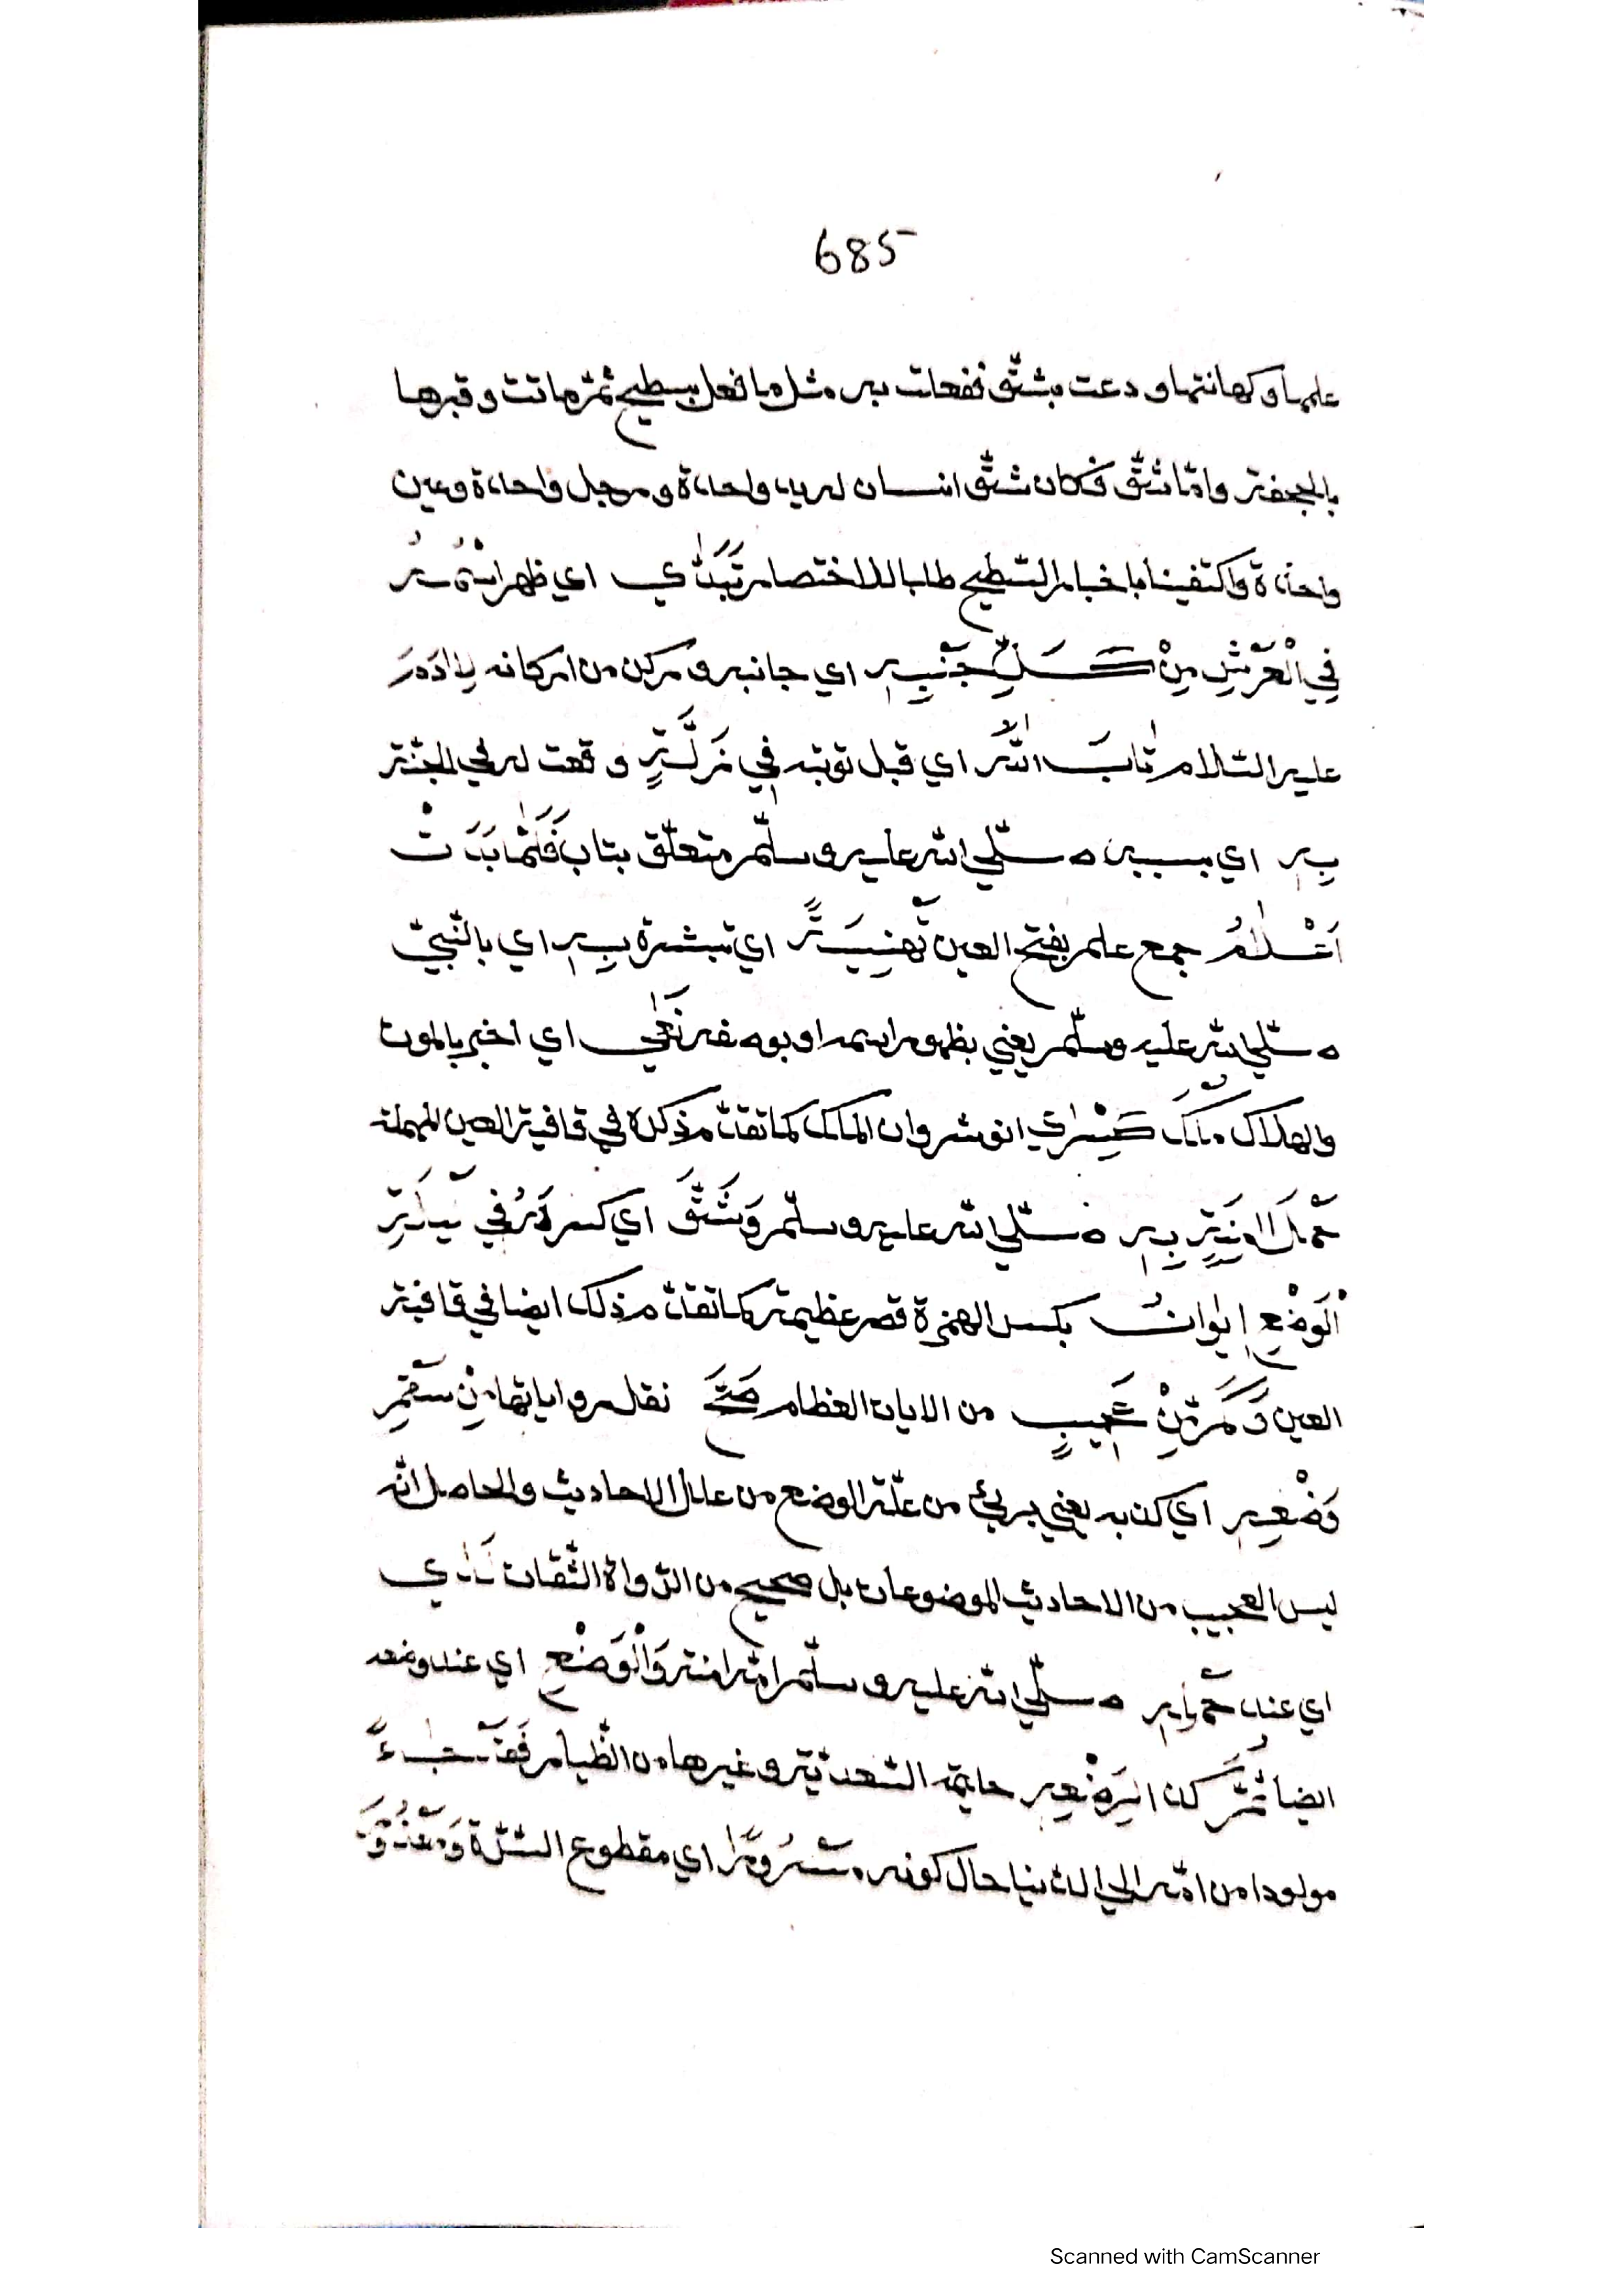 685
علمها وكهانتها و دعت بشقّ ففعلت به مثل ما فعل بسطيح ثمّ ماتت و قبرها
بالجحفة وامّا شقّ فكان شقّ انسان له يد واحدة و رجل واحدة وعين
واحدة واكتفينا باخبار السّطيح طلبا للاختصار تَبَدّٰي اي ظهر اسْمُهُ
فِي الْعَرْشِ مِنْ كُلِّ جَنْبِهِ اي جانبه و ركن من اركانه لِاٰدَمَ
عليه السّلام تَابَ اللّٰهُ اي قبل توبته فِي زَلَّةٍ وقعت له في الجنّة
بِهِ اي بسببه صلّي اللّه عليه وسلّم متعلّق بتاب فَلَمَّا بَدَتْ
اَعْلَامُ جمع علم بفتح العين تَهْنِيَةً اي تبشرة بِهِ اي بالنّبيّ
صلّي اللّه عليه وسلّم يعني بظهور اسمه او بوصفه نَعٰي اي اخبر بالموت
والهلاك مُلْكَ كِسْرٰي انوشروان الملك كما تقدّم ذكره في قافية العين المهملة
حَمْلُ اٰمِنَةٍ بِهِ صلّي اللّه عليه وسلّم وَشُقَّ اي كسر فِي لَيْلَةِ
الْوَضْعِ اِيْوَانُ بكسر الهمزة قصر عظيمة كما تقدّم ذلك ايضا في قافية
العين وَكَمْ مِّنْ عَجِيبٍ من الايات العظام صَحَّ نقل رواياتها مِنْ سَقَمِ
وَضْعِهِ اي كذبه يعني بريئ من علّة الوضع من علل الاحاديث والحاصل انّه
ليس العجيب من الاحاديث الموضوعات بل صحيح من الرّواة الثّقات لَدٰي
اي عند حَمْلِهِ صلّي اللّه عليه وسلّم امّه امنة وَالْوَضْعِ اي عند وضعه
ايضا ثُمَّ كذا لِرَضْعِهِ حليمة السّعديّة و غيرها من الظّيام فَقَدْ جَاءَ
مولودا من امّه الي الدّنيا حال كونه مَسْرُورًا اي مقطوع السّرّة